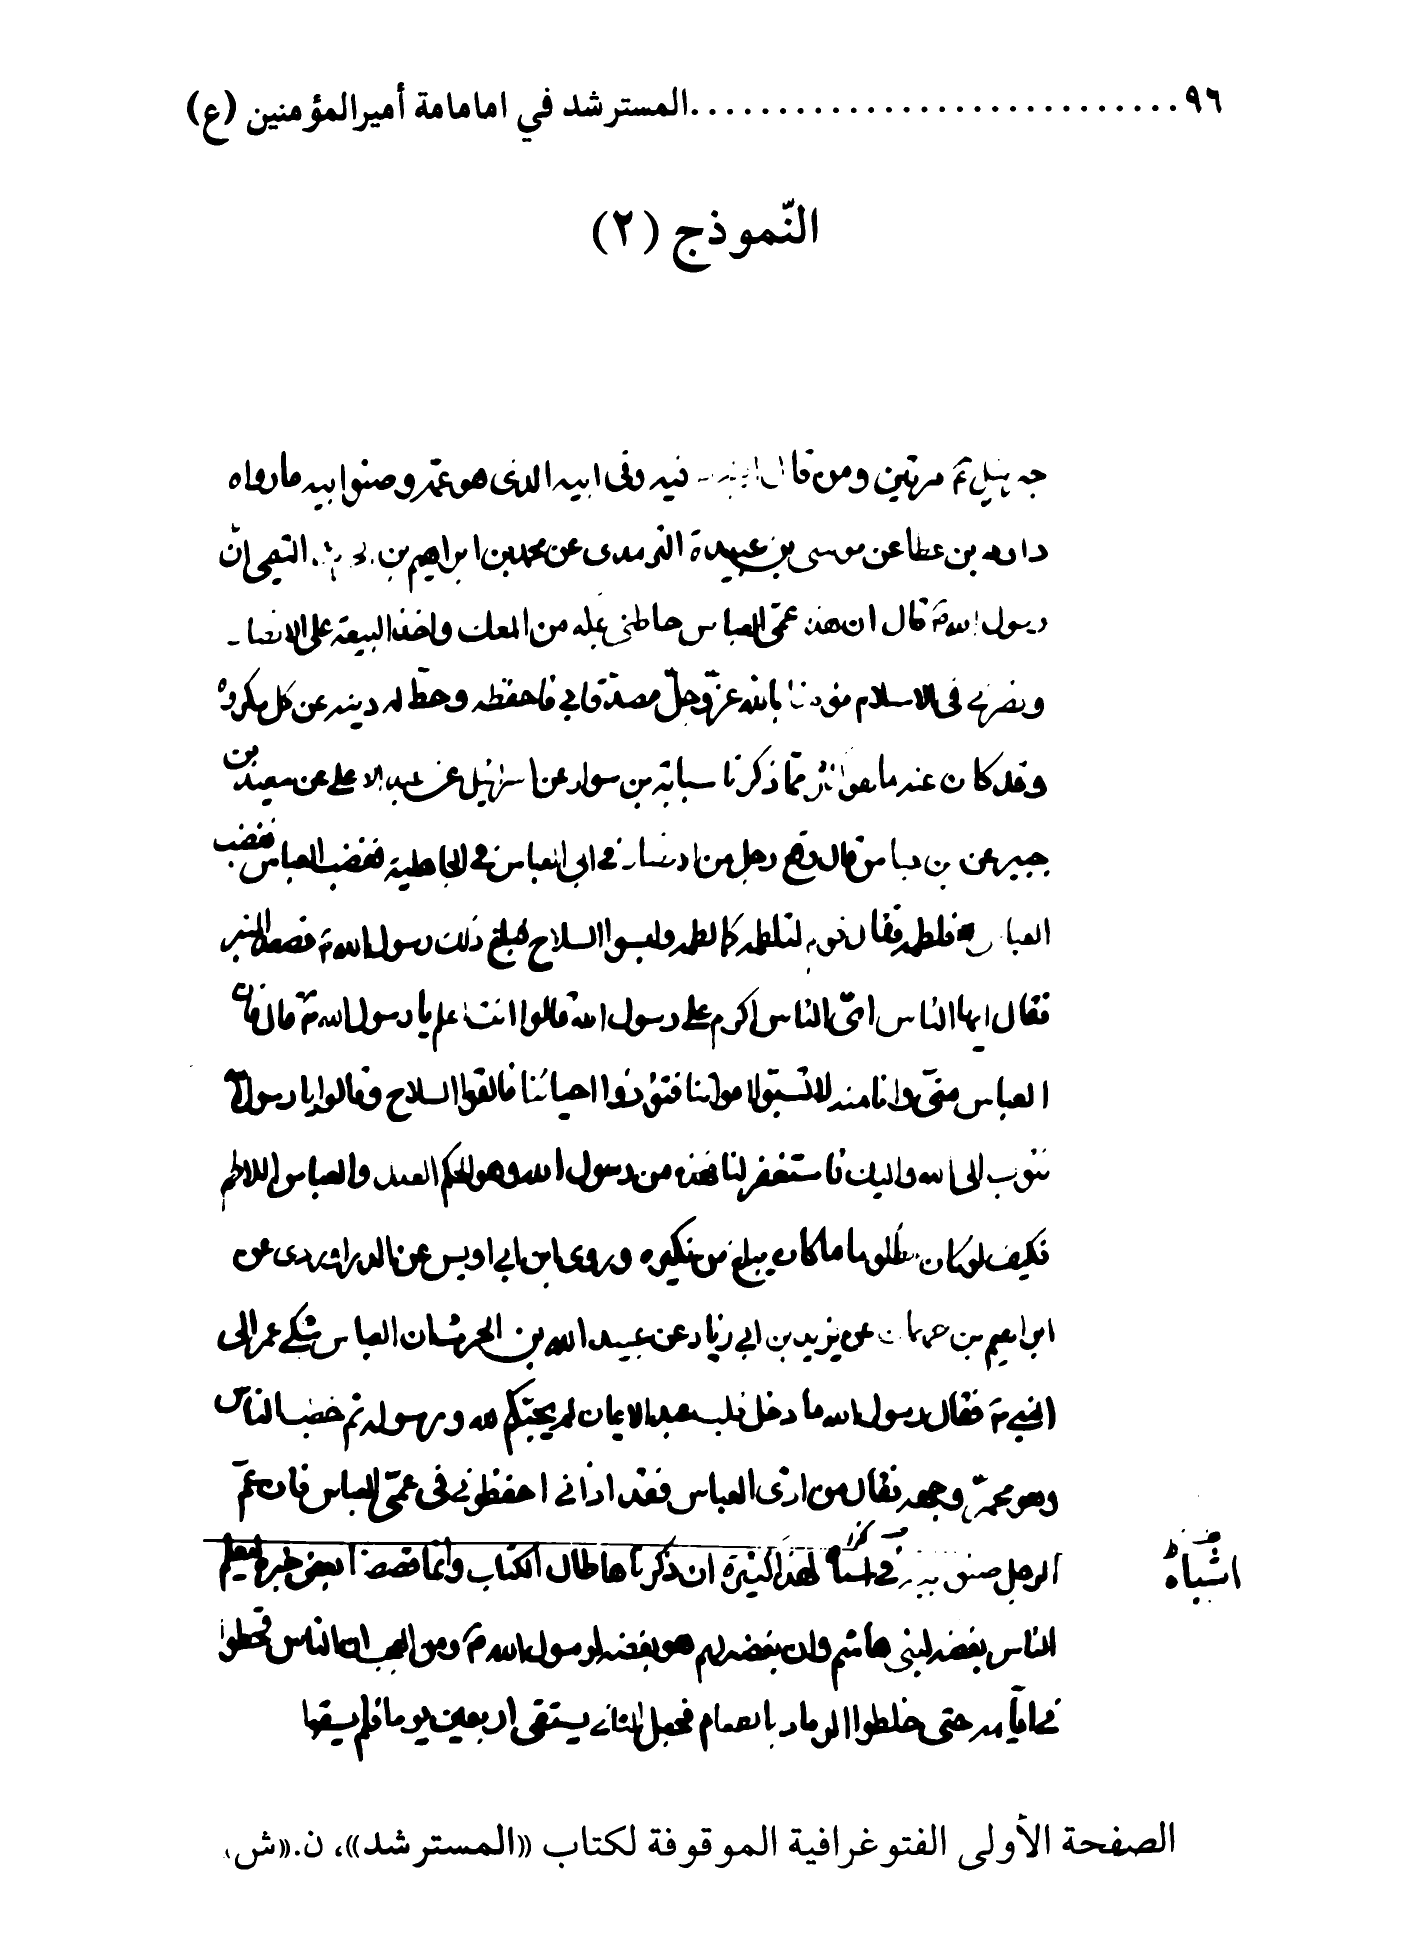 ٩٦ ............................المسترشد في امامامة أميرالمؤمنين (ع)
النّموذج (٢)
مرتين ومن قال فيه وفى ابيه الذى هو عمّه وصنوابيه مارواه
بن عطا عن موسى بن عبيدة الترمدى عن محمد بن ابراهيم بن التيمى انّ
رسول الله ص قال ان هذا عمّى العباس حاطنى من واخذ البيعة على الانصار
ونصرنى فى الاسلام بالله عزّ وجلّ مصدّقا بي فاحفظه وحط له دينه عن كل مكروه
وقد كان عنده ما ممّا ذكرنا سبابة بن سوار عن اسرائيل عن عبد الاعلى عن سعيد بن
جبير عن بن عباس قال وقع رجل من الانصار في ابى العباس في الجاهلية فغضب العباس فغضب
العباس فلطمه فقال قومه لنلطمه كما لطمه ولبسوا السلاح فبلغ ذلك رسول الله ص فصعد المنبر
فقال ايها الناس اىّ الناس اكرم على رسول الله قالوا انت اعلم يا رسول الله ص قال فان
العباس منّى وانا منه لا تسبّوا امواتنا فتؤذوا احيائنا فالقوا السلاح وقالوا يا رسول الله
نتوب الى الله واليك فاستغفر لنا فهذه من رسول الله وهو الحكم العدل والعباس اللاطم
فكيف لو كان مظلوما ما كان يبلغ من نكيره وروى ابن ابي اويس عن الدراوردى عن
ابراهيم بن عن يزيد بن ابي زياد عن عبيد الله بن الحرث ان العباس شكى عمر الى
النبي ص فقال رسول الله ما دخل قلب عبد الايمان لم يحبّكم لله ورسوله ثم خضب الناس
وهو محمرّ وجهه فقال من اذى العباس فقد اذاني احفظوني فى عمّى العباس فان عمّ
الرجل صنو ابيه في اشباه لهذا كثيرة ان ذكرناها طال الكتاب وانما قصصنا بعض خبره ليعلم
اشباه
الناس بغضه لبنى هاشم وان بغضه لهم هو بغضه لرسول الله ص ومن العجب ان الناس قحطوا
في ايامه حتى خلطوا الرماد بالطعام فجعل الثانى يستقى اربعين يوما فلم يسقها
الصفحة الأولى الفتوغرافية الموقوفة لكتاب «المسترشد»، ن.«ش،